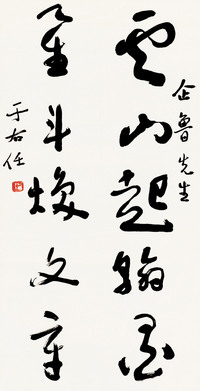 企魯先生
雲山起翰墨
星斗煥文章
于右任